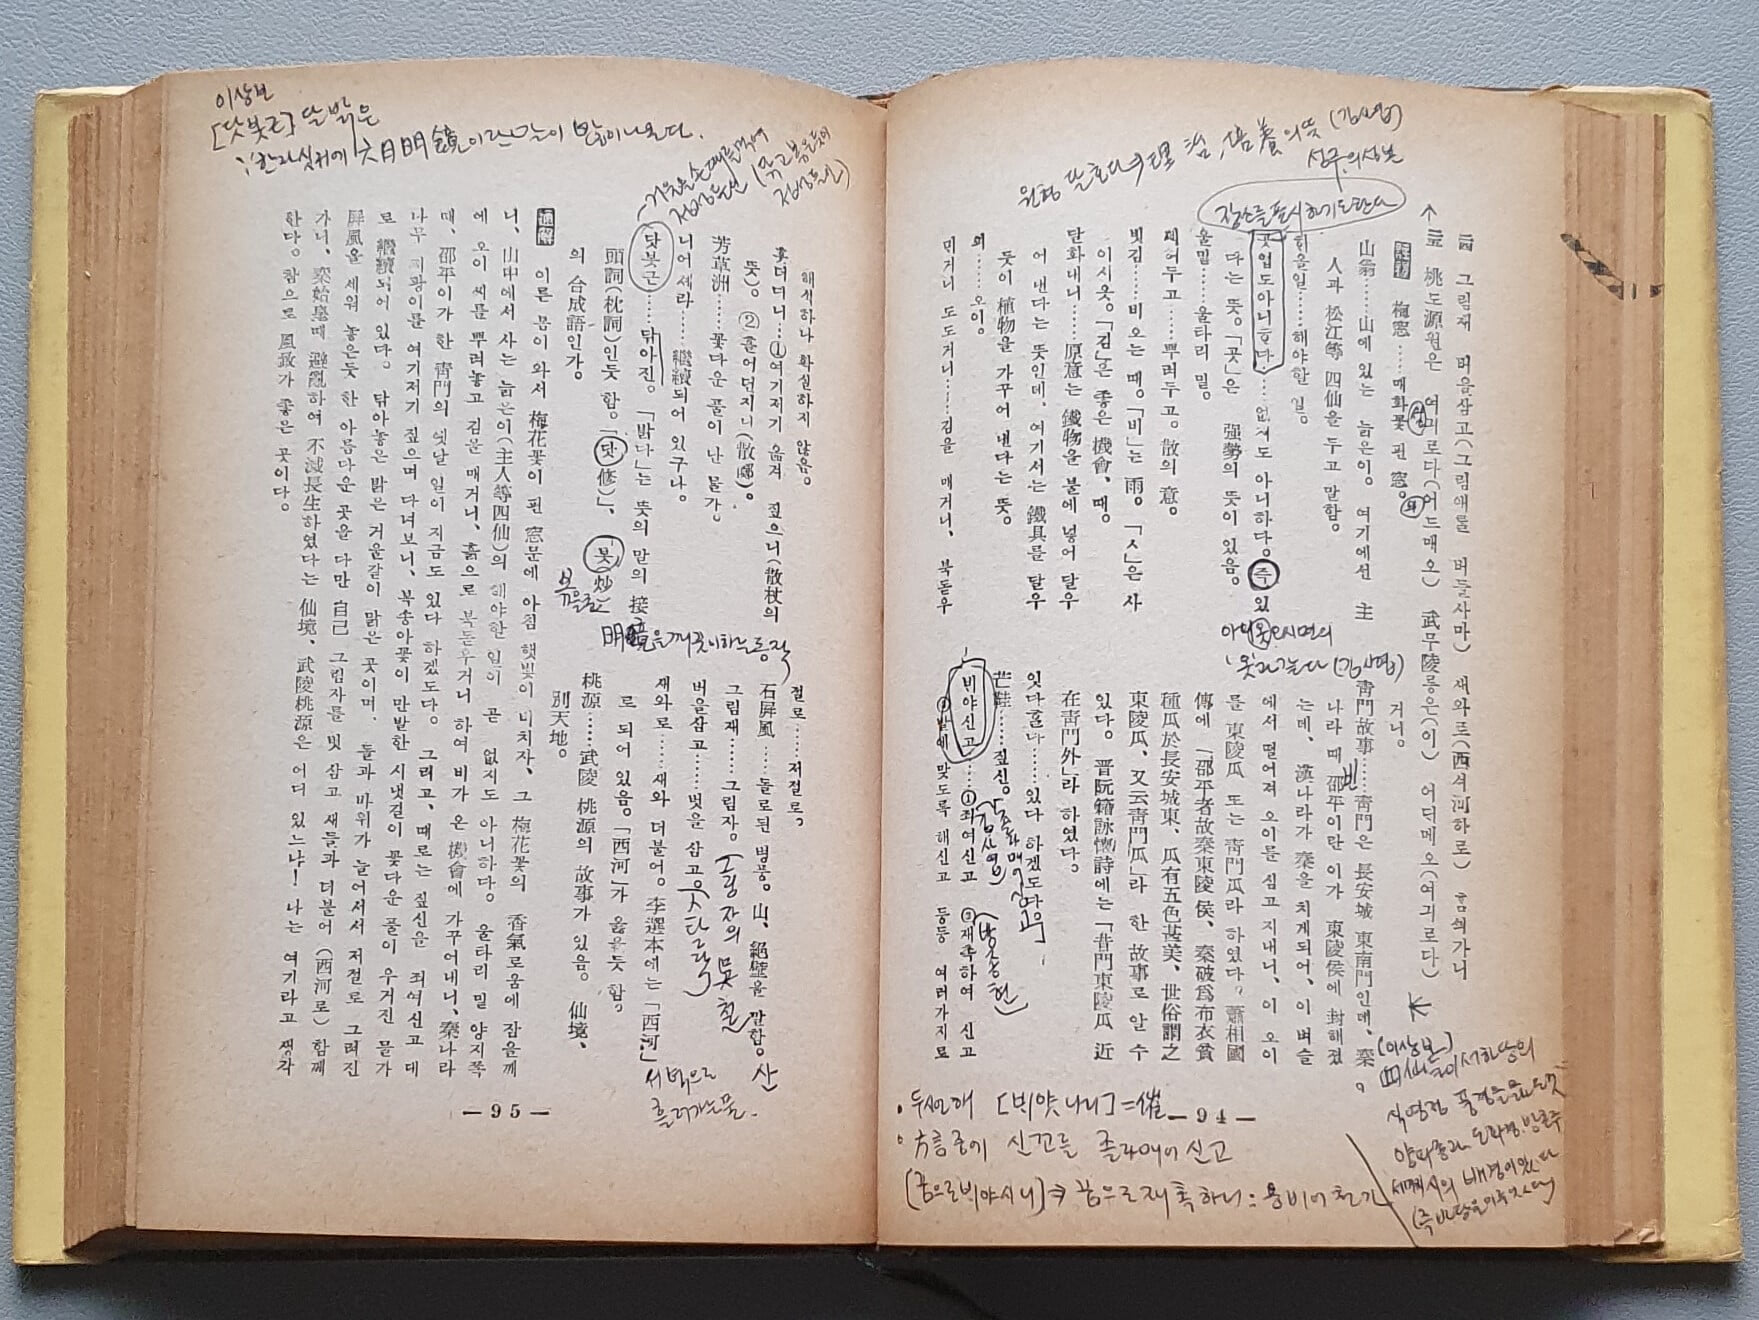 그림재 벼을삼고(그림애를 버들사마) 새와로(西셔河하로) 흠쇠가니
桃도源원은 여긔로다(어드매오) 武무陵릉은(이) 어딘메오(여긔로다)
註釋 梅窓……매화꽃 핀 窓。
山翁……山에 있는 늙은이。 여기에선 主
人과 松江等 四仙을 두고 말함。
히올일……해야할 일。
곳업도아니ᄒᆞ다……없져도 아니하다。 즉 있
다는 뜻。「곳」은 强勢의 뜻이 있음。
울밑……울타리 밑。
쎄허두고……뿌려두고。 散의 意。
빗김……비오는 때。「비」는 雨。「ㅅ」은 사
이시옷。「김」은 좋은 機會、때。
달화내니……原意는 鐵物을 불에 넣어 달우
어 낸다는 뜻인데、여기서는 鐵具를 달우
뜻이 植物을 가꾸어 낸다는 뜻。
외……오이。
믹거니 도도거니……김을 매거니、 북돋우
거니。
靑門故事……靑門은 長安城 東南門인데、秦
나라 때 邵平이란 이가 東陵侯에 封해졌
는데、漢나라가 秦을 치게되어、이 벼슬
에서 떨어져 오이를 심고 지내니、이 오이
를 東陵瓜 또는 靑門瓜라 하였다。蕭相國
傳에 「邵平者故秦東陵侯、秦破爲布衣貧
種瓜於長安城東、瓜有五色甚美、世俗謂之
東陵瓜、又云靑門瓜」라 한 故事로 알 수
있다。晋阮籍詠懷詩에는「昔門東陵瓜 近
在靑門外」라 하였다。
잇다ᄒᆞᆯ다……있다 하겠도다
芒鞋……짚신。
빅야신고……①죄여신고 ②재촉하여 신고
③발에 맞도록 해신고 등등 여러가지로
—94—
해석하나 확실하지 않음。
훗더디니……①여기저기 옮겨 짚으니(散杖의
뜻)。 ②흩어던지니(散擲)。
芳草洲……꽃다운 풀이 난 물가。
니어세라……繼續되어 있구나。
닷봇근……닦아진。「밝다」는 뜻의 말의 接
頭詞(枕詞)인듯 함。「닷(修)」、 봇(炒)
의 合成語인가。
절로……저절로。
石屛風……돌로된 병풍。山、絕壁을 말함。
그림재……그림자。
벼을삼고……벗을 삼고
새와로……새와 더불어。李選本에는「西河」
로 되어 있음。「西河」가 옳을듯 함。
桃源……武陵 桃源의 故事가 있음。 仙境、
別天地。
通解 이른 봄이 와서 梅花꽃이 핀 窓문에 아침 햇빛이 비치자、그 梅花꽃의 香氣로움에 잠을깨
니、山中에서 사는 늙은이(主人等四仙)의 해야한 일이 곧 없지도 아니하다。 울타리 밑 양지쪽
에 오이 씨를 뿌려놓고 김을 매거니、흙으로 북돋우거니 하여 비가 온 機會에 가꾸어내니、秦나라
때、邵平이가 한 靑門의 옛날 일이 지금도 있다 하겠도다。 그러고、때로는 짚신을 죄여신고 대
나무 지팡이를 여기저기 짚으며 다녀보니、복숭아꽃이 만발한 시냇길이 꽃다운 풀이 우거진 물가
로 繼續되어 있다。 닦아놓은 밝은 거울같이 맑은 곳이며、 돌과 바위가 늘어서서 저절로 그려진
屛風을 세워 놓은듯 한 아름다운 곳을 다만 自己 그림자를 벗 삼고 새들과 더불어 (西河로) 함께
가니、秦始皇때 避亂하여 不滅長生하였다는 仙境、武陵桃源은 어디 있느냐! 나는 여기라고 생각
한다。참으로 風致가 좋은 곳이다。
—95—
이상보
[닷봇근] 딸 밝은
한자 싯귀에 六月明鏡이라는 말이 많이 나온다.
明鏡을 깨끗이 하는 동작
볶을초
서녁으로
흘러가는 물.
원형 달호다 理治, 培養의 뜻 (김사엽)
장소를 표시하기도 한다
(김사엽)
(방종현)
· 두시언해 [빅얏나니]=催
· 方言중에 신끈를 졸라매어 신고
[꿈으로빅야시니] 꿈으로 재촉하니 : 용비어천가
(이상보)
四仙들이 서하당의
식영정 풍경을 읊은 것